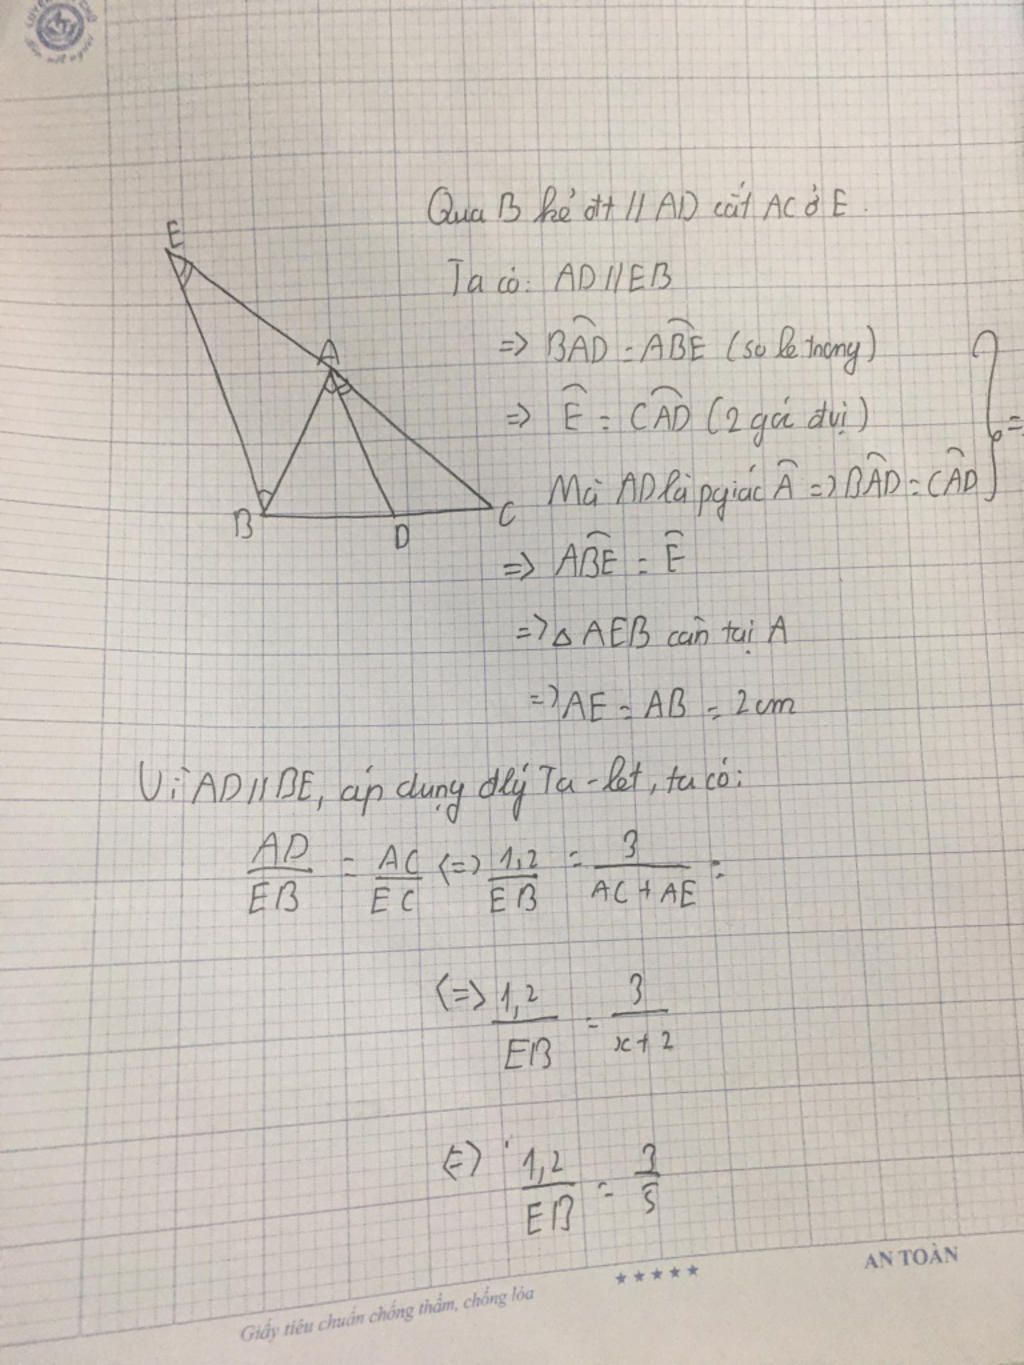 Qua B kẻ đt // AD cắt AC ở E.
E
Ta có: AD // EB
=> BÂD = AB̂E (so le trong)
A
=> Ê = CÂD (2 góc đvị)
Mà AD là pgiác Â => BÂD = CÂD } =
B D C
=> AB̂E = Ê
=> △ AEB cân tại A
=> AE = AB = 2cm
Vì AD // BE, áp dụng đlý Ta-let, ta có:
AD/EB = AC/EC <=> 1,2/EB = 3/(AC + AE) =
<=> 1,2/EB = 3/(x+2)
<=> 1,2/EB = 3/5
AN TOÀN
★★★★★
Giấy tiêu chuẩn chống thấm, chống lóa